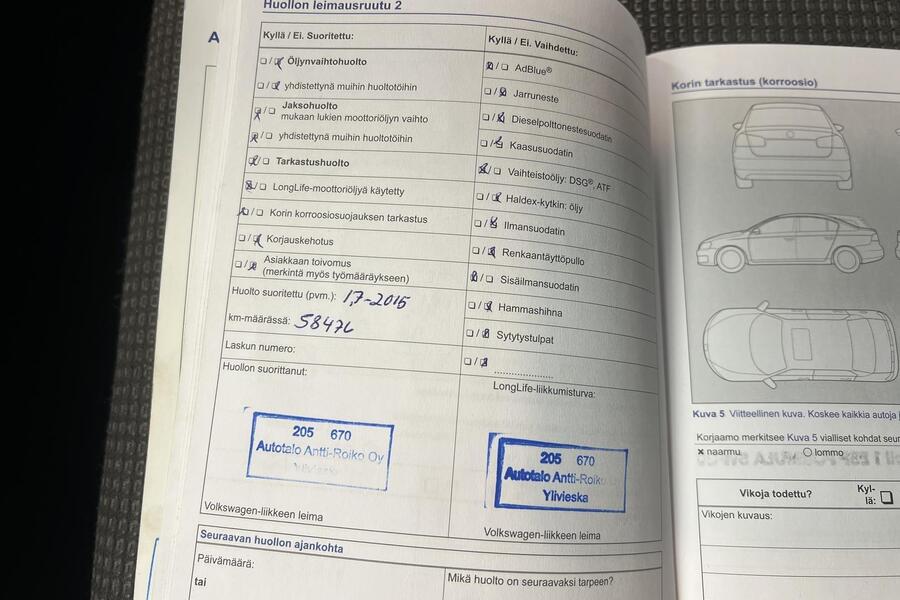 Huollon leimausruutu 2
Kyllä / Ei. Suoritettu:
Öljynvaihtohuolto
yhdistettynä muihin huoltotöihin
Jaksohuolto
mukaan lukien moottoriöljyn vaihto
yhdistettynä muihin huoltotöihin
Tarkastushuolto
LongLife-moottoriöljyä käytetty
Korin korroosiosuojauksen tarkastus
Korjauskehotus
Asiakkaan toivomus
(merkintä myös työmääräykseen)
Huolto suoritettu (pvm.): 1,7-2016
km-määrässä: 58476
Laskun numero:
Huollon suorittanut:
205 670
Autotalo Antti-Roiko Oy
Ylivieska
Volkswagen-liikkeen leima
Kyllä / Ei. Vaihdettu:
AdBlue®
Jarruneste
Dieselpolttonestesuodatin
Kaasusuodatin
Vaihteistoöljy: DSG®, ATF
Haldex-kytkin: öljy
Ilmansuodatin
Renkaantäyttöpullo
Sisäilmansuodatin
Hammashihna
Sytytystulpat
LongLife-liikkumisturva:
205 670
Autotalo Antti-Roiko
Ylivieska
Volkswagen-liikkeen leima
Seuraavan huollon ajankohta
Päivämäärä:
tai
Mikä huolto on seuraavaksi tarpeen?
Korin tarkastus (korroosio)
Kuva 5 Viitteellinen kuva. Koskee kaikkia autoja
Korjaamo merkitsee Kuva 5 vialliset kohdat seur
× naarmu
○ lommo
Vikoja todettu?
Kyl-
lä:
Vikojen kuvaus: